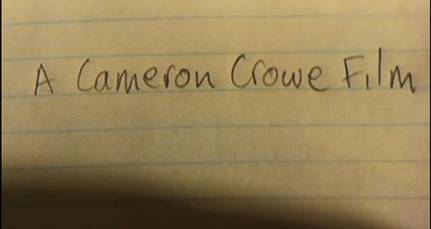 A Cameron Crowe Film